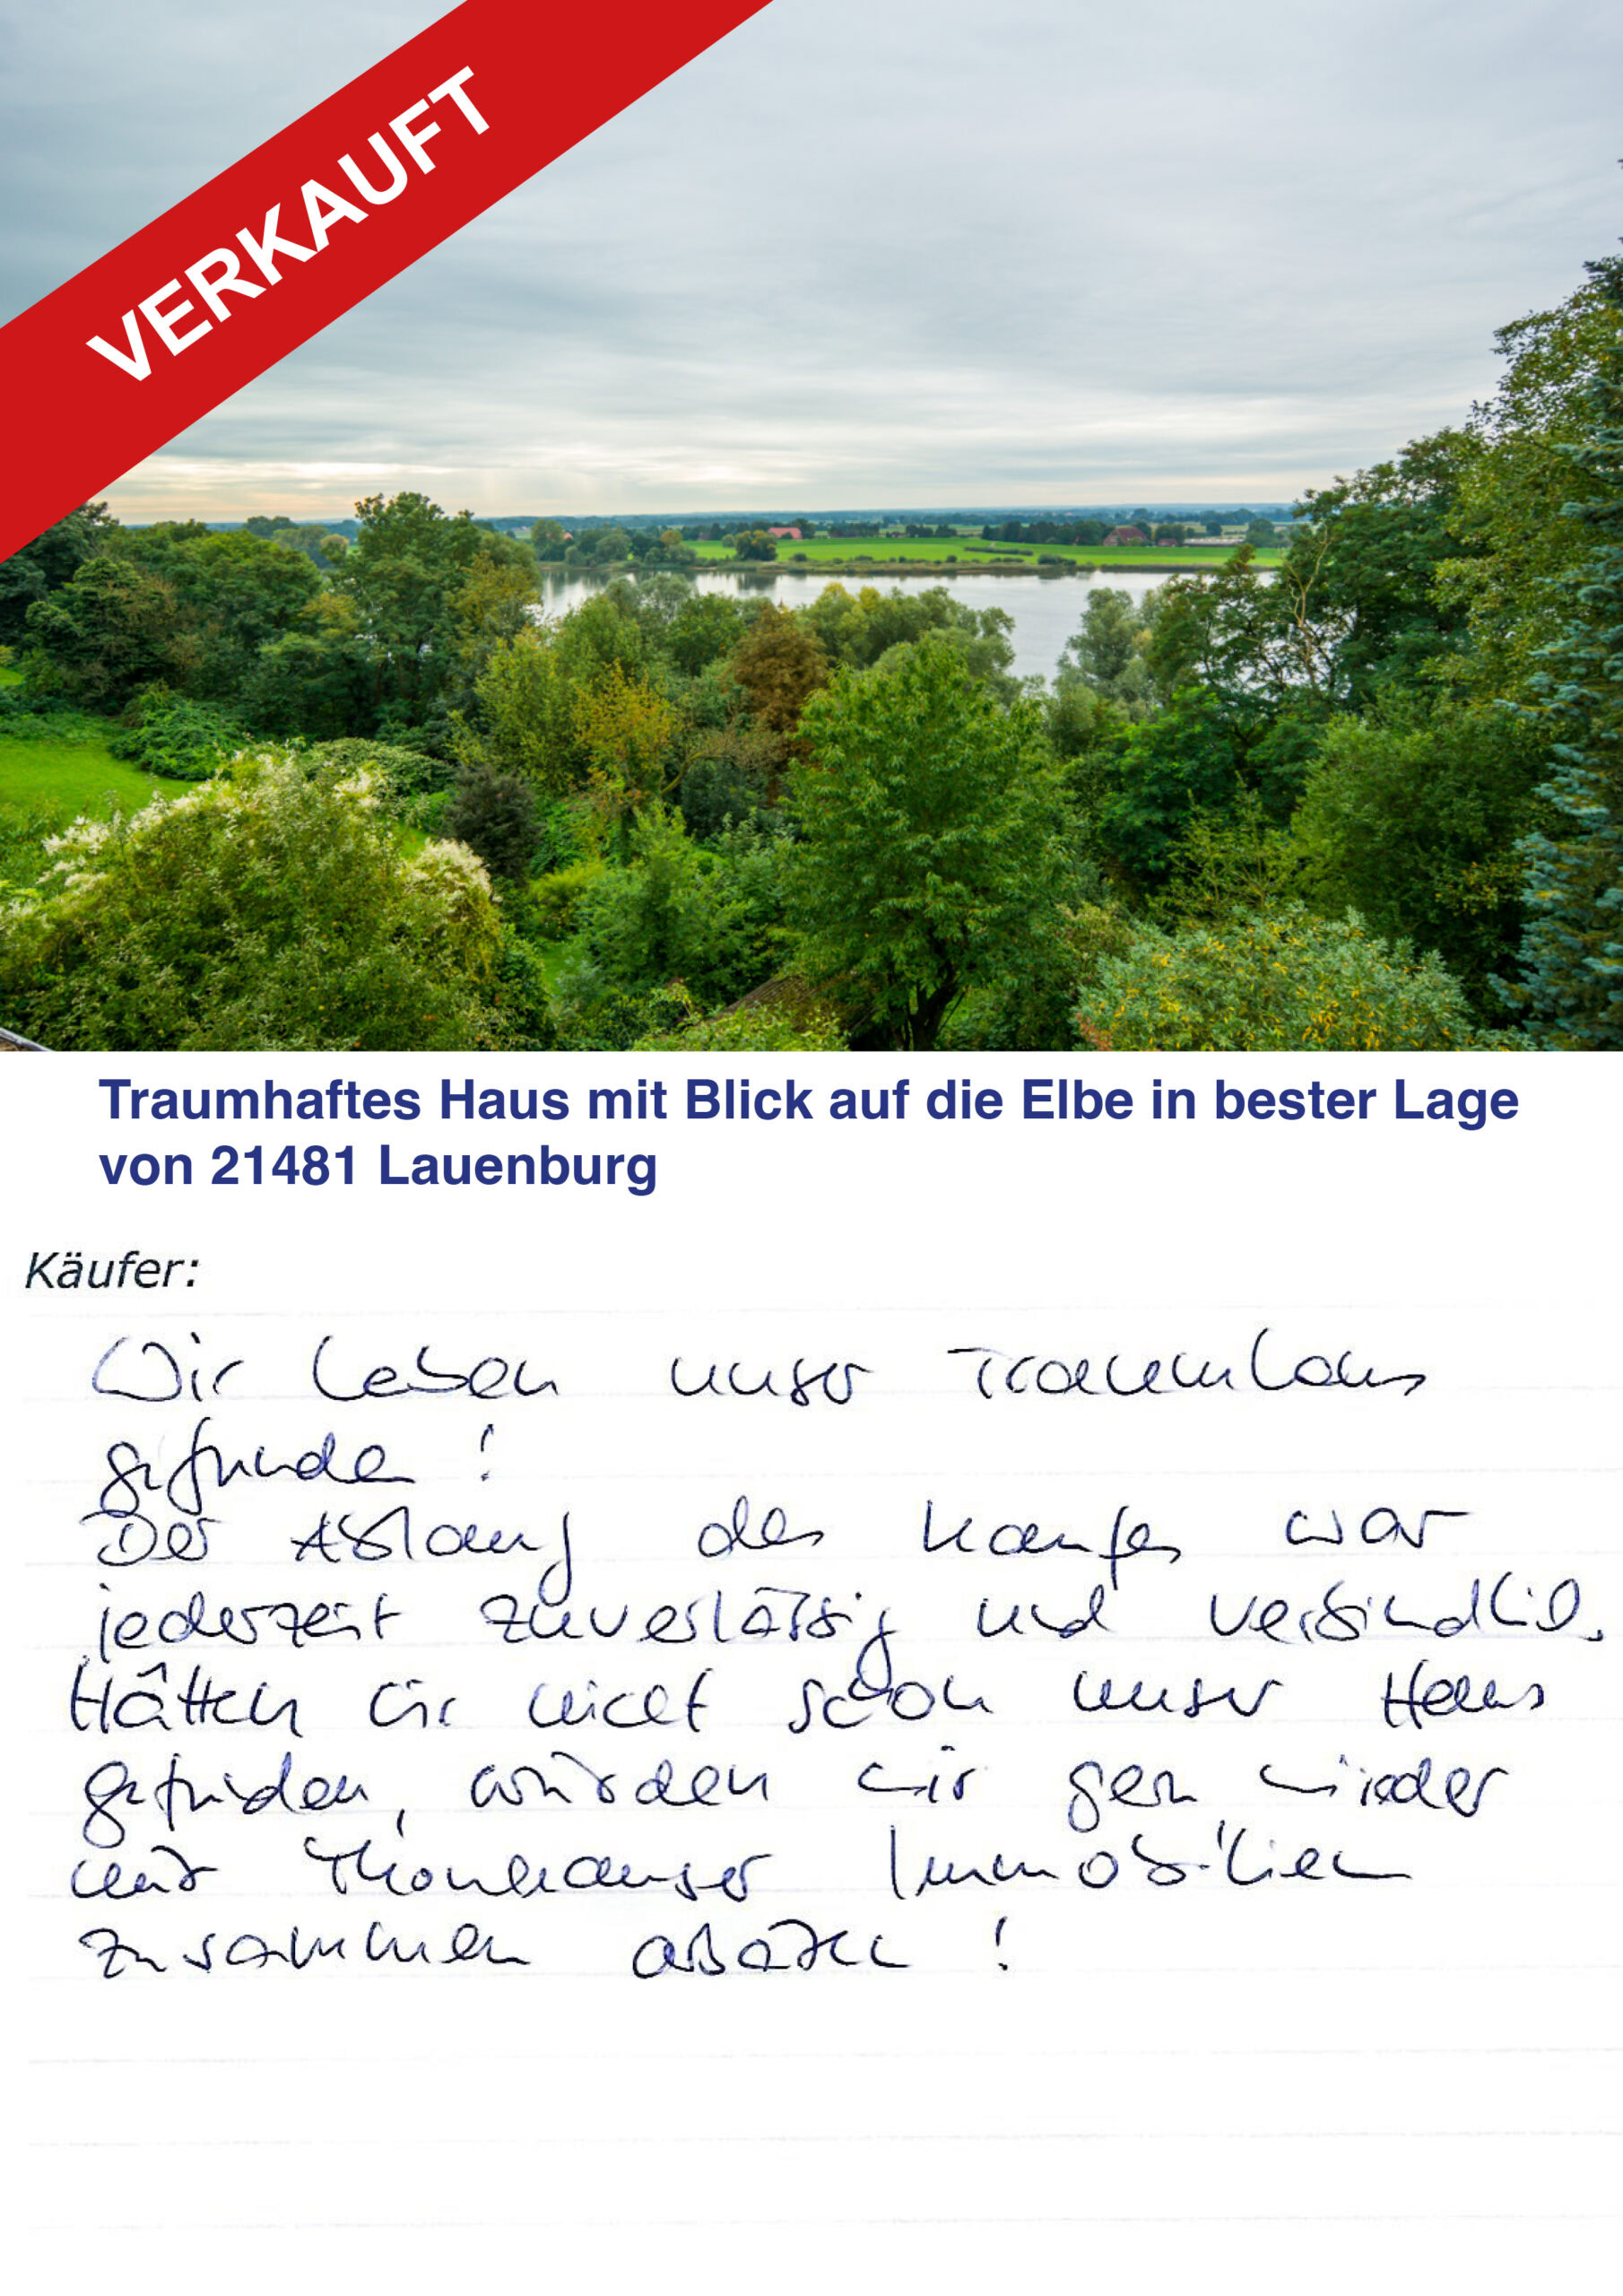 VERKAUFT
Traumhaftes Haus mit Blick auf die Elbe in bester Lage
von 21481 Lauenburg
Käufer:
Wir haben unser Traumhaus
gefunden!
Der Ablauf des Kaufes war
jederzeit zuverlässig und verbindlich.
Hätten wir nicht schon unser Haus
gefunden, würden wir gern wieder
mit Thonhauser Immobilien
zusammen arbeiten!